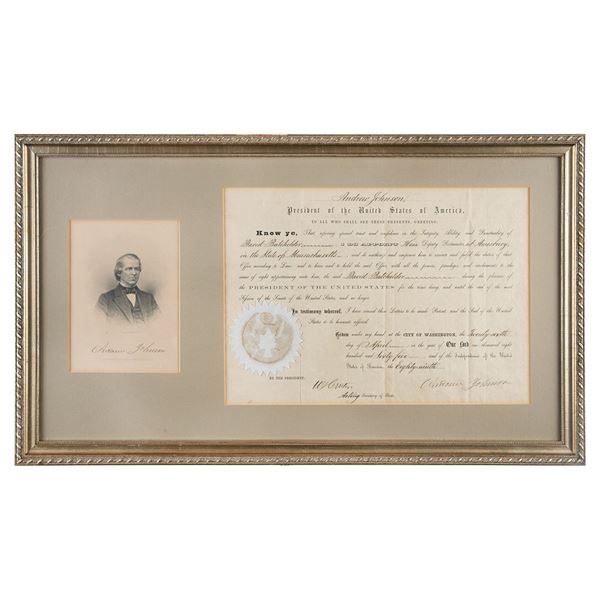 Andrew Johnson
Andrew Johnson,
President of the United States of America,
TO ALL WHO SHALL SEE THESE PRESENTS, GREETING:
Know ye, That reposing special trust and confidence in the Integrity, Ability, and Punctuality of
David Batchelder I DO APPOINT Him Deputy Postmaster, at Amesbury,
in the State of Massachusetts and do authorize and empower him to execute and fulfil the duties of that
Office according to Law; and to have and to hold the said Office, with all the powers, privileges, and emoluments to the
same of right appertaining unto him, the said David Batchelder during the pleasure of
the PRESIDENT OF THE UNITED STATES for the time being, and until the end of the next
Session of the Senate of the United States, and no longer.
In testimony whereof, I have caused these Letters to be made Patent, and the Seal of the United
States to be hereunto affixed.
Given under my hand, at the CITY OF WASHINGTON, the Twenty ninth
day of April in the year of Our Lord one thousand eight
hundred and Sixty five and of the Independence of the United
States of America, the Eighty ninth.
BY THE PRESIDENT:
W Hunter Andrew Johnson
Acting Secretary of State.